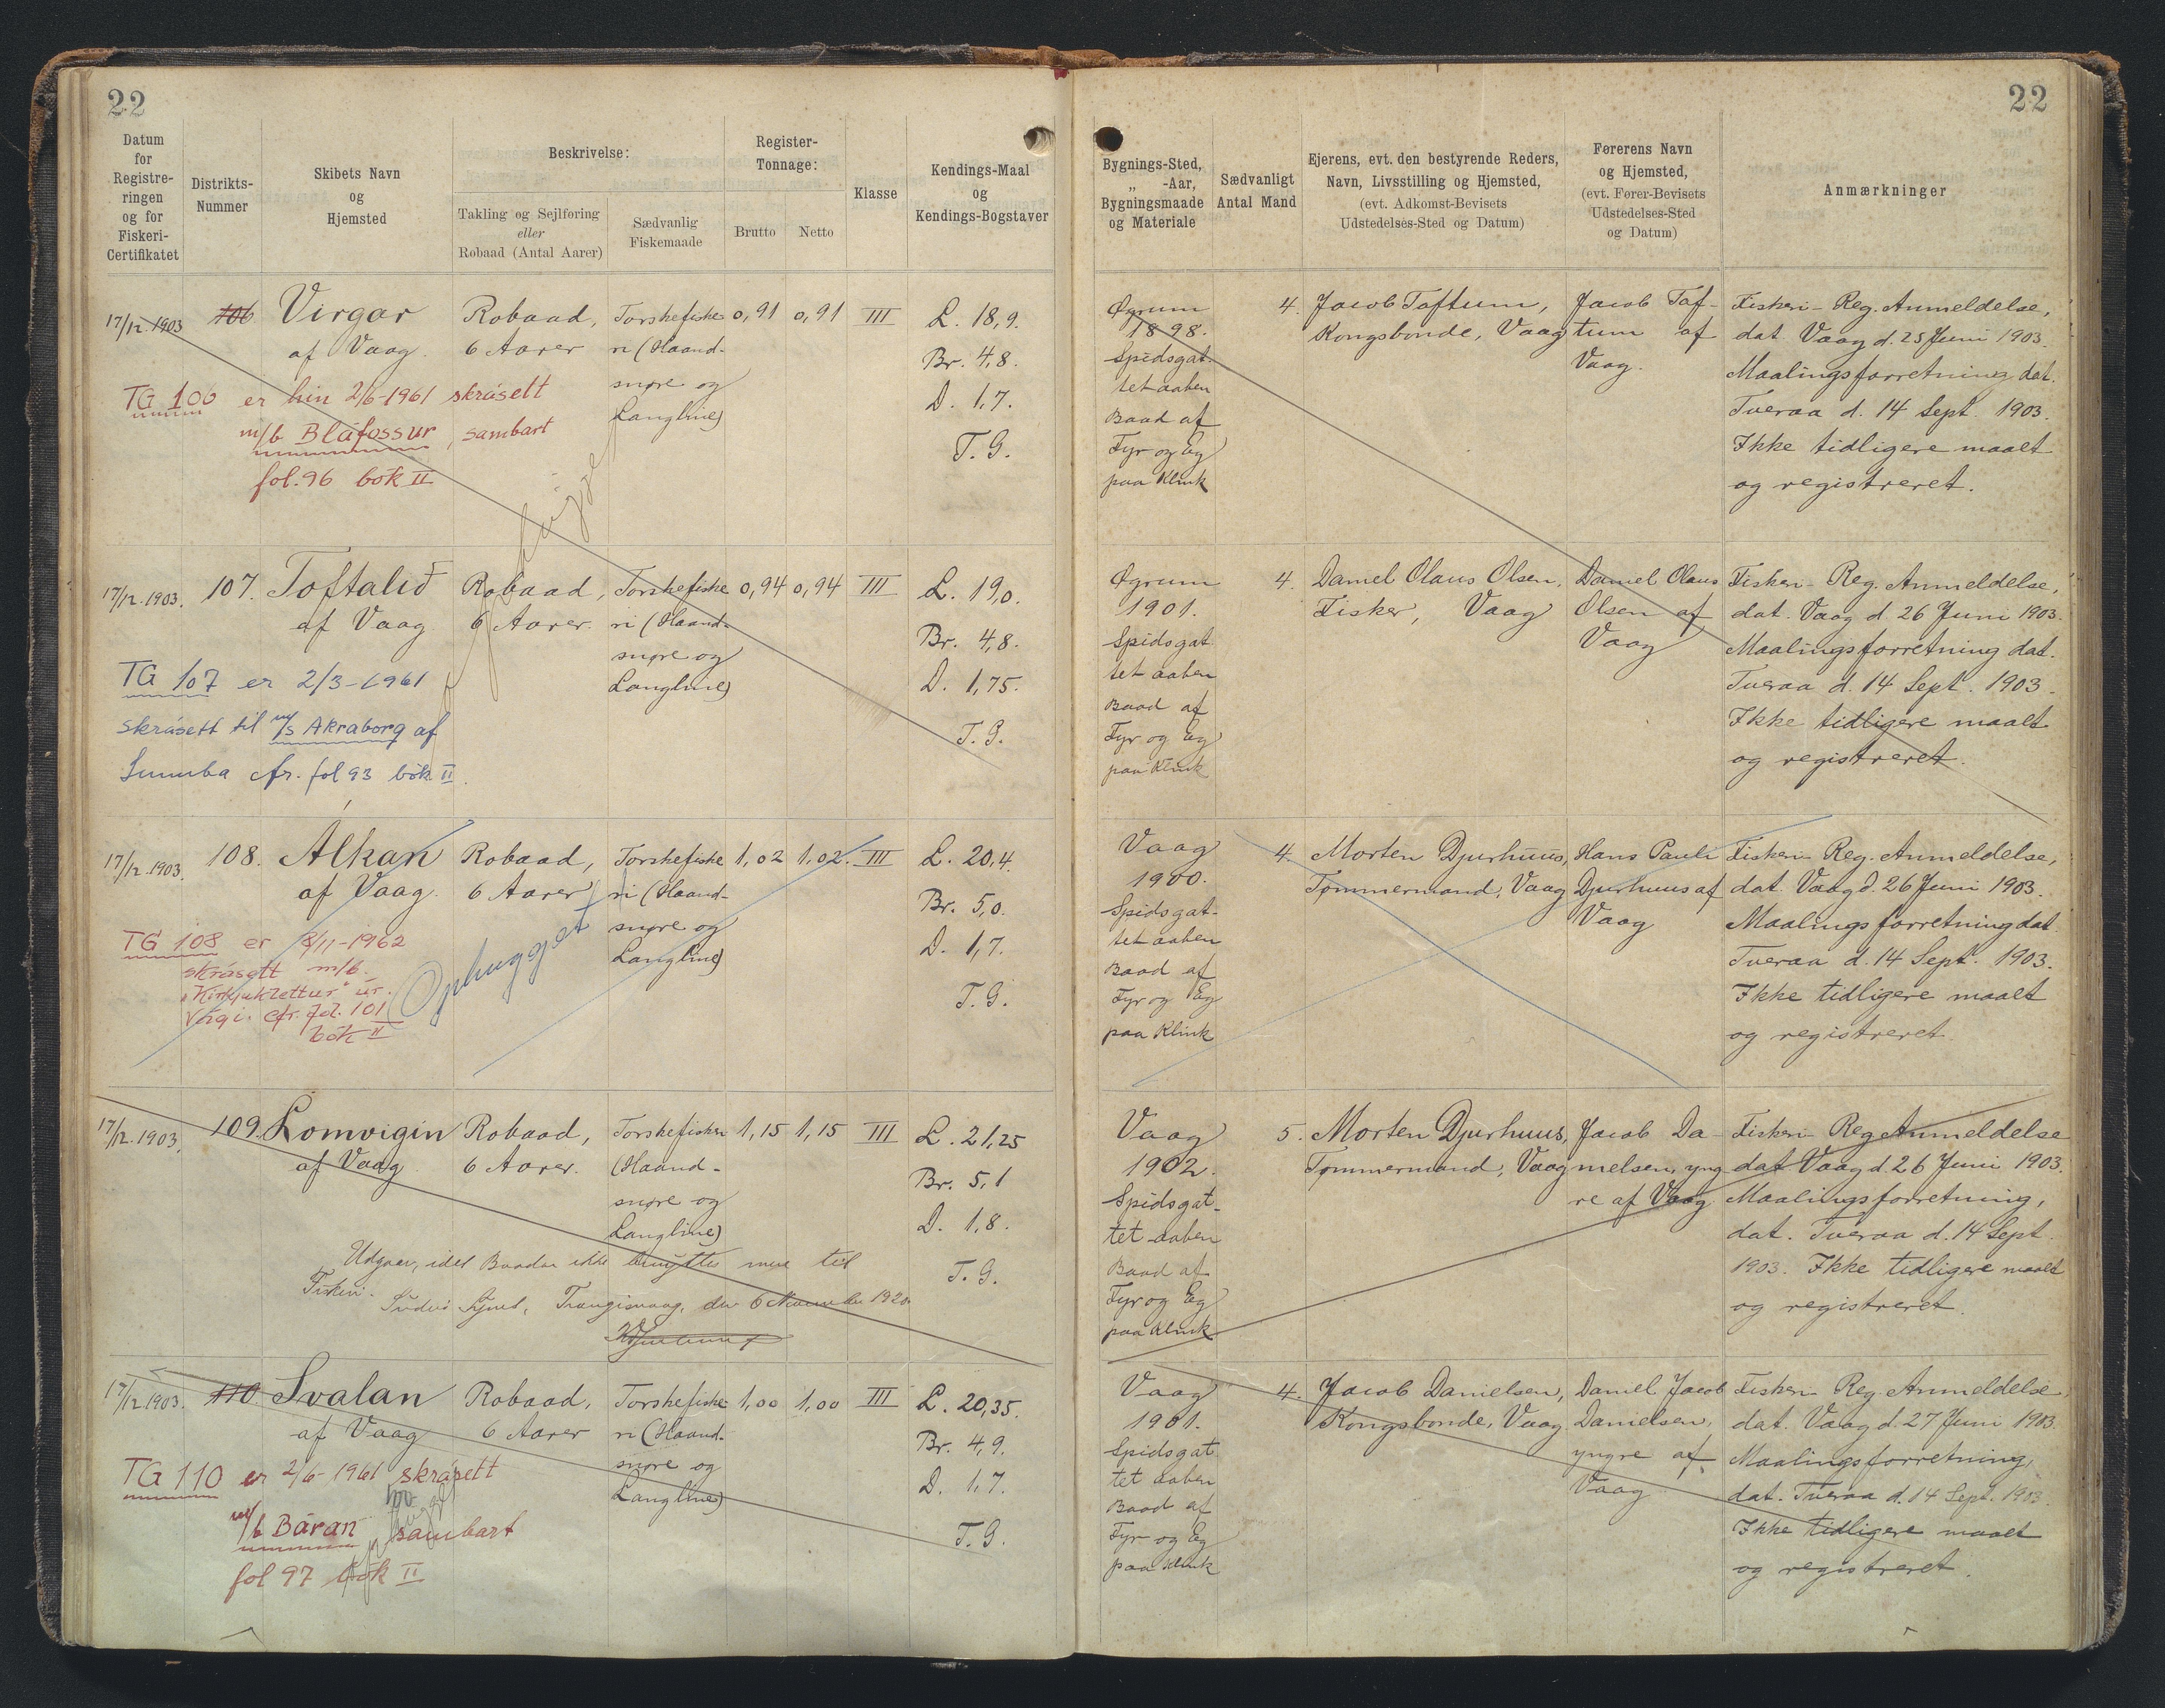 22
22
Datum
for
Registre-
ringen
og for
Fiskeri-
Certifikatet
Distrikts-
Nummer
Skibets Navn
og
Hjemsted
Beskrivelse:
Takling og Sejlføring
eller
Robaad (Antal Aarer)
Sædvanlig
Fiskemaade
Register-
Tonnage:
Brutto
Netto
Klasse
Kendings-Maal
og
Kendings-Bogstaver
Bygnings-Sted,
„ -Aar,
Bygningsmaade
og Materiale
Sædvanligt
Antal Mand
Ejerens, evt. den bestyrende Reders,
Navn, Livsstilling og Hjemsted,
(evt. Adkomst-Bevisets
Udstedelses-Sted og Datum)
Førerens Navn
og Hjemsted,
(evt. Fører-Bevisets
Udstedelses-Sted
og Datum)
Anmærkninger
17/12.1903
106
Virgar
af Vaag.
Robaad,
6 Aarer
Torskefiske
ri (Haand-
snøre og
Langline)
0,91
0,91
III
L. 18,9.
Br. 4,8.
D. 1,7.
T. G.
TG 106 er hin 2/6-1961 skrásett
m/b Bláfossur, sambart
fol. 96 bók II
Øgrum
1898.
Spidsgat
tet aaben
Baad af
Fyr og Eg
paa Klink
4.
Jacob Toftum,
Kongsbonde, Vaag
Jacob Tof-
tum af
Vaag.
Fiskeri-Reg. Anmeldelse,
dat. Vaag d. 25 Juni 1903.
Maalingsforretning dat.
Tveraa d. 14 Sept. 1903.
Ikke tidligere maalt
og registreret.
17/12.1903.
107.
Toftalið
af Vaag
Robaad,
6 Aarer.
Torskefiske
ri (Haand-
snøre og
Langline)
0,94
0,94
III
L. 19,0.
Br. 4,8.
D. 1,75.
T. G.
TG 107 er 2/3-1961
skrásett til m/s Akraborg af
Sumba cfr. fol 93 bók II.
Øgrum
1901.
Spidsgat
tet aaben
Baad af
Fyr og Eg
paa Klink
4.
Daniel Olaus Olsen,
Fisker, Vaag
Daniel Olaus
Olsen af
Vaag
Fiskeri-Reg. Anmeldelse,
dat. Vaag d 26 Juni 1903.
Maalingsforretning dat.
Tveraa d. 14 Sept. 1903.
Ikke tidligere maalt
og registreret.
17/12.1903.
108.
Álkan
af Vaag.
Robaad,
6 Aarer
Torskefiske
ri (Haand-
snøre og
Langline)
1,02
1,02.
III
L. 20,4.
Br. 5,0.
D. 1,7.
T. G.
TG 108 er 8/11-1962
skrásett m/b.
"Kirkjuklettur" úr
Vági. cfr. fol. 101
bók II
Ophugget
Vaag
1900.
Spidsgat-
tet aaben
Baad af
Fyr og Eg
paa Klink
4.
Morten Djurhuus,
Tømmermand, Vaag
Hans Pauli
Djurhuus af
Vaag
Fiskeri-Reg. Anmeldelse,
dat. Vaag d. 26 Juni 1903.
Maalingsforretning dat.
Tveraa d. 14 Sept. 1903.
Ikke tidligere maalt
og registreret
17/12.1903.
109.
Lomvigin
af Vaag
Robaad,
6 Aarer.
Torskefiskeri
(Haand-
snøre og
Langline)
1,15
1,15
III
L. 21,25
Br. 5,1
D. 1,8.
T. G.
Udgaar, idet Baaden ikke benyttes mere til
Fiskeri.
Suderø Syssel, Trangisvaag, den 6 November 1920
Vaag
1902.
Spidsgat-
tet aaben
Baad af
Fyr og Eg
paa Klink
5.
Morten Djurhuus,
Tømmermand, Vaag
Jacob Da-
nielsen, yng
re af Vaag
Fiskeri Reg Anmeldelse
dat Vaag d. 26 Juni 1903.
Maalingsforretning,
dat. Tveraa d. 14 Sept.
1903. Ikke tidligere maalt
og registreret.
17/12.1903.
110.
Svalan
af Vaag
Robaad,
6 Aarer
Torskefiske
ri (Haand-
snøre og
Langline)
1,00
1,00
III
L. 20,35.
Br. 4,9.
D. 1,7.
T. G.
TG 110 er 2/6-1961 skrásett
m/b Báran sambart
fol 97 bók II
Vaag
1901.
Spidsgat
tet aaben
Baad af
Fyr og Eg
paa Klink
4.
Jacob Danielsen,
Kongsbonde, Vaag
Daniel Jacob
Danielsen,
yngre af
Vaag
Fiskeri-Reg. Anmeldelse,
dat. Vaag d. 27 Juni 1903.
Maalingsforretning,
dat. Tveraa d. 14 Sept. 1903.
Ikke tidligere maalt
og registreret.